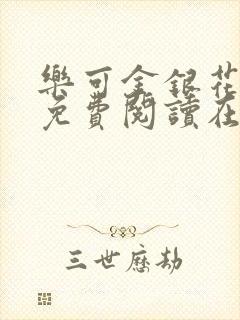 樂可金銀花
免費閱讀在
三世歷劫